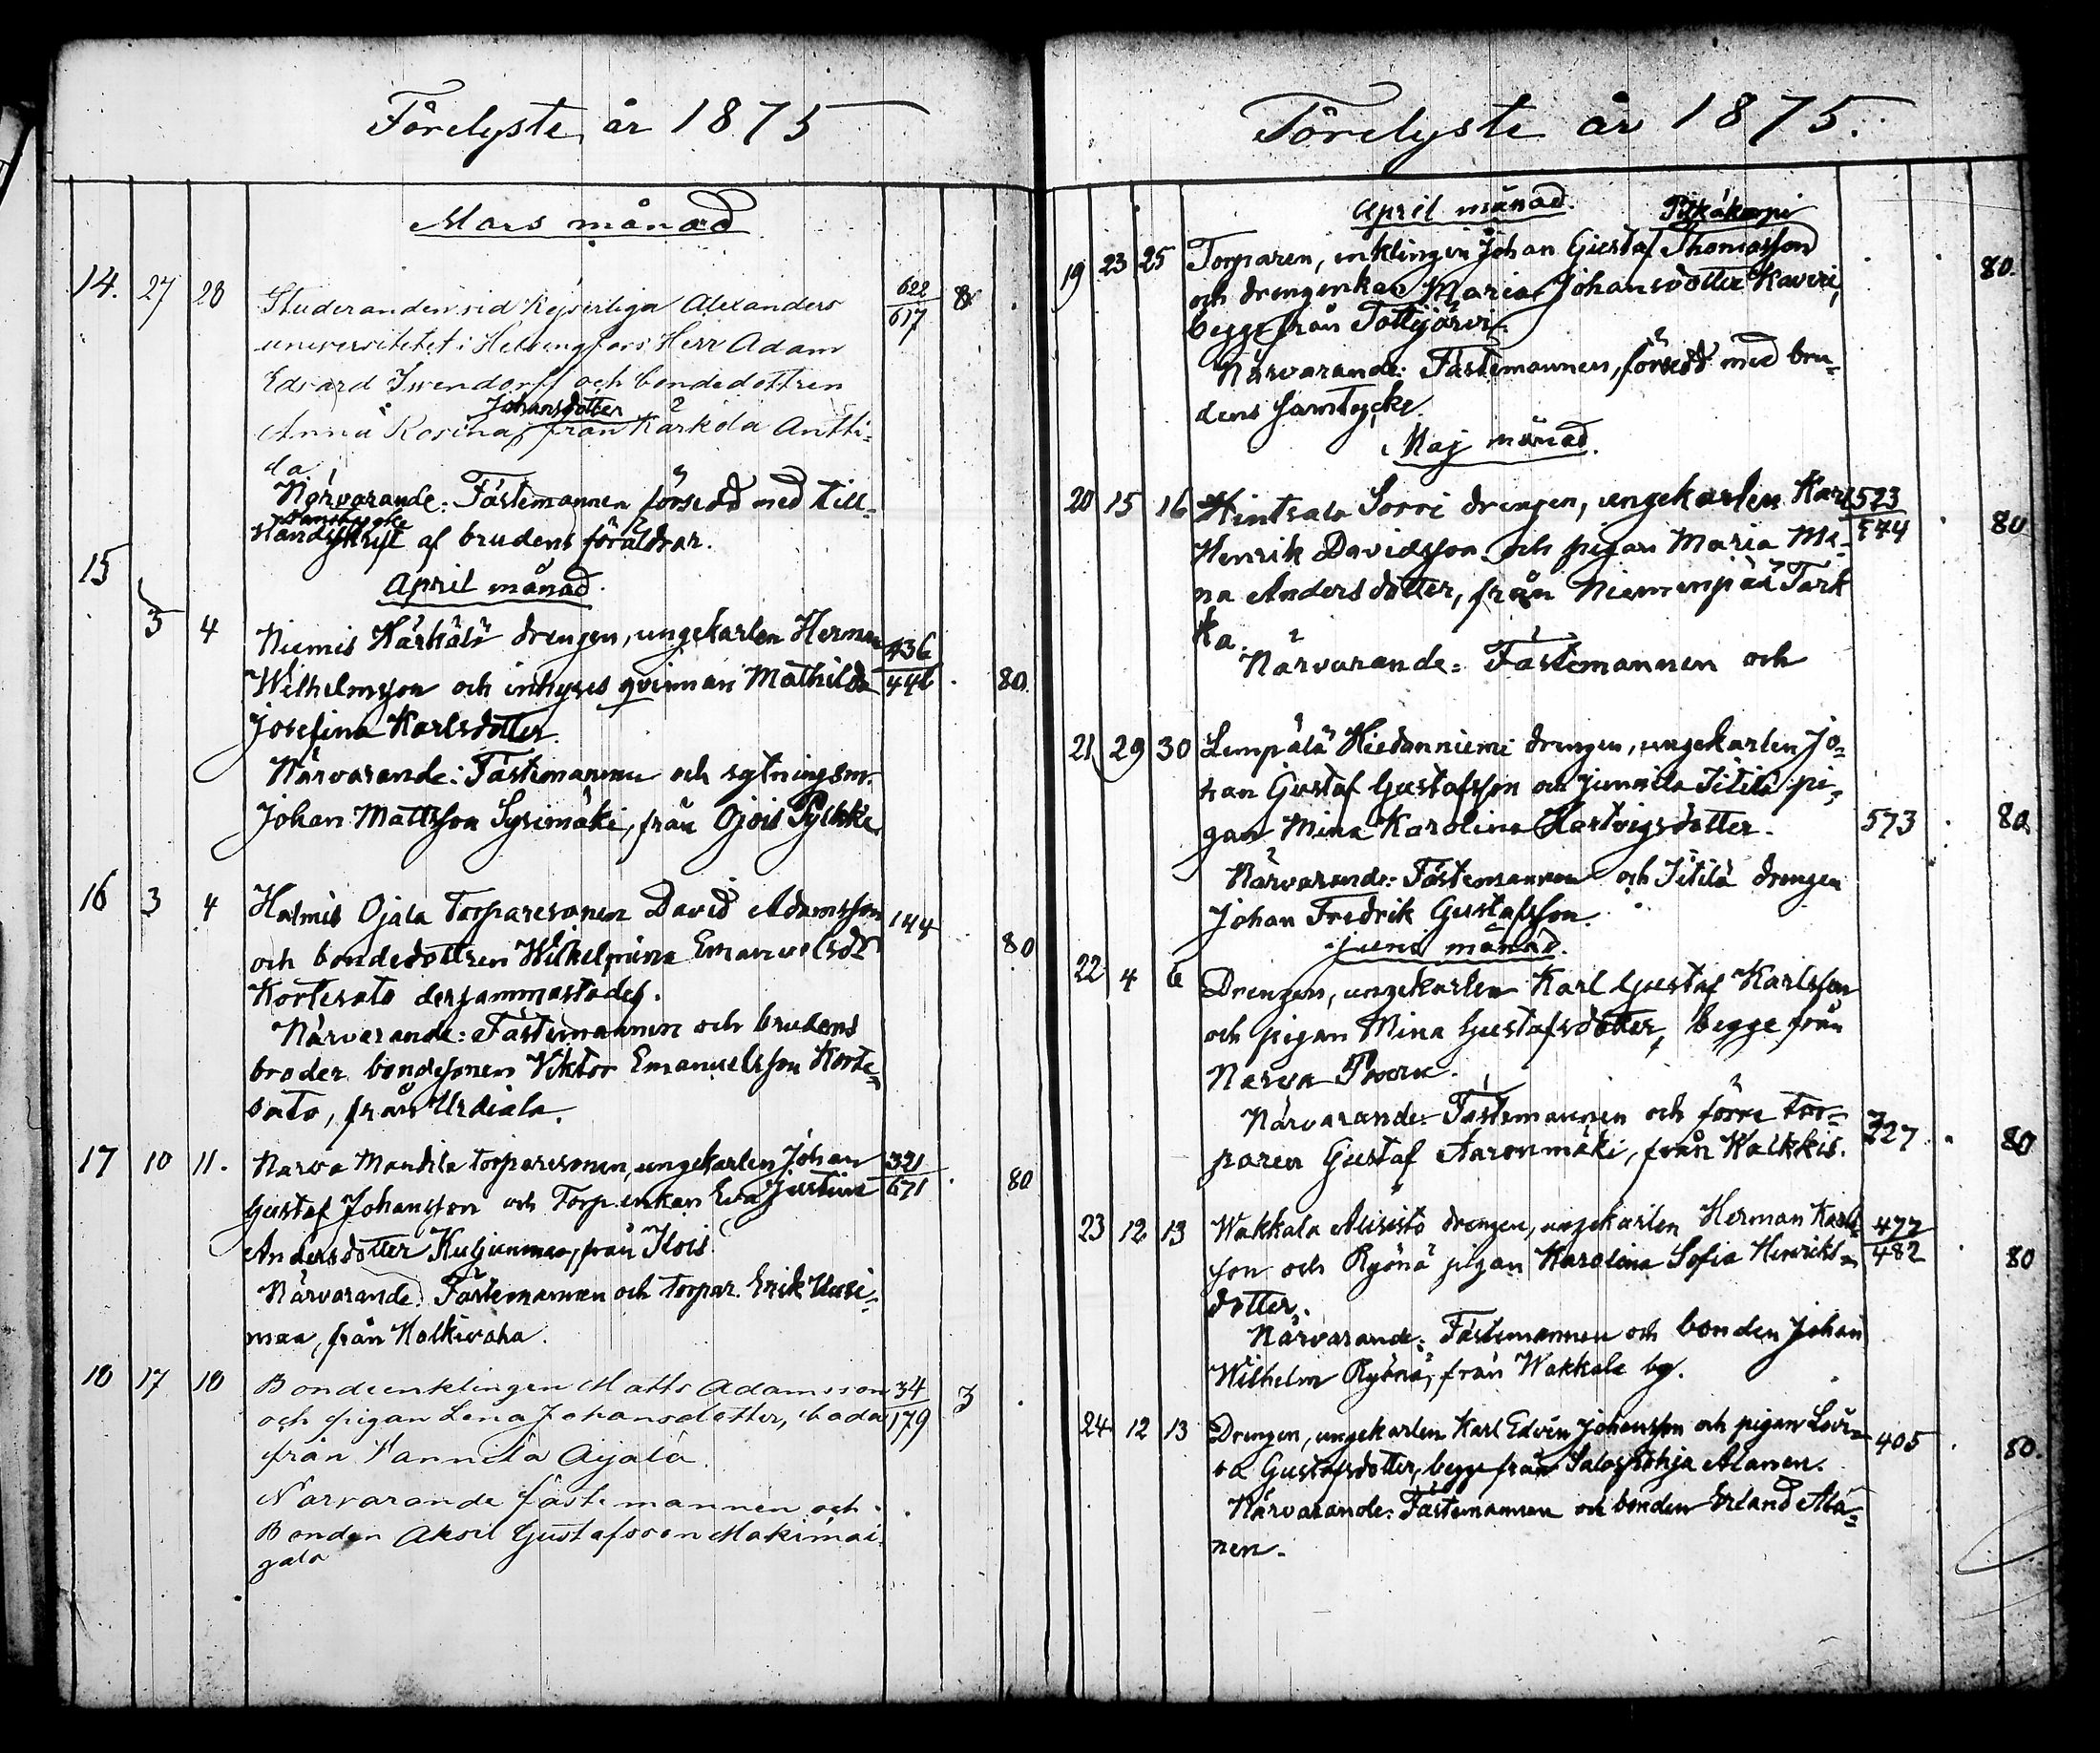 Förelyste år 1875
Mars månad
14. 27 28 Studeranden vid Kejserliga Alexanders 622/617 8
universitetet i Helsingfors Herr Adam
Edvard Iwendorff och bondedottren
Johansdotter
Anna Rosina, från Kärkölä Antti-
la
Närvarande: Fästemannen försedd med till-
samtycke
ståndsskrift af brudens föräldrar.
15
April månad.
3 4 Niemis Kärkölä drengen, ungekarlen Herman 436/446 80
Wilhelmsson och inhyses qvinnan Mathilda
Josefina Karlsdotter.
Närvarande: Fästemannen och sytningsm.
Johan Mattsson Syrimäki, från Ojois Pylkke.
16 3 4 Halmis Ojala torparesonen David Adamsson 144 80
och bondedottren Wilhelmina Emanuelsdr
Kortesato dersammastädes.
Närvarande: Fästemannen och brudens
broder bondesonen Viktor Emanuelsson Korte-
sato, från Urdiala.
17 10 11. Narva Mandila torparesonen, ungekarlen Johan 321/671 80
Gustaf Johansson och Torp.enkan Eva Justina
Andersdotter Kuljunmaa, från Ilois.
Närvarande: Fästemannen och torpar. Erik Uusi-
maa, från Kolkivaha.
18 17 18 Bondeenklingen Matts Adamsson 34/179 3
och pigan Lena Johansdotter, båda
från Vannila Äijälä.
Närvarande fästemannen och
Bonden Aksel Gustafsson Mäkimai-
gala
Förelyste år 1875.
April månad. Pitkäkorpi
19 23 25 Torparen, enklingen Johan Gustaf Thomasson 80.
och drengenkan Maria Johansdotter Kaveri,
begge från Tottijärvi.
Närvarande: Fästemannen, försedd med bru-
dens samtycke.
Maj månad.
20 15 16 Hintsala Sorri drengen, ungekarlen Karl 523/544 80
Henrik Davidsson och pigan Maria Me-
na Andersdotter, från Niemenpää Tark
ka.
Närvarande: Fästemannen och
21 29 30 Lempälä Hiedanniemi drengen, ungekarlen Jo-
han Gustaf Gustafsson och Junnila Jitilä pi-
gan Mina Karolina Hartvigsdotter. 573 80
Närvarande: Fästemannen och Jitilä drengen
Johan Fredrik Gustafsson.
Juni månad.
22 4 6 Drengen, ungekarlen Karl Gustaf Karlsson
och pigan Mina Gustafsdotter, begge från
Narva
Närvarande: Fästemannen och förre tor-
paren Gustaf Aaronmäki, från Kalkkis. 227 80
23 12 13 Wakkala Alisistö drengen, ungekarlen Herman Karls- 477/482 80
son och Ryönä pigan Karolina Sofia Henriks-
dotter.
Närvarande: Fästemannen och bonden Johan
Wilhelm Ryönä, från Wakkala by.
24 12 13 Drengen, ungekarlen Karl Edvin Johansson och pigan Lovi- 405 80.
sa Gustafsdotter, begge från Salospohja Alanen.
Närvarande: Fästemannen och bonden Erland Ala-
nen.